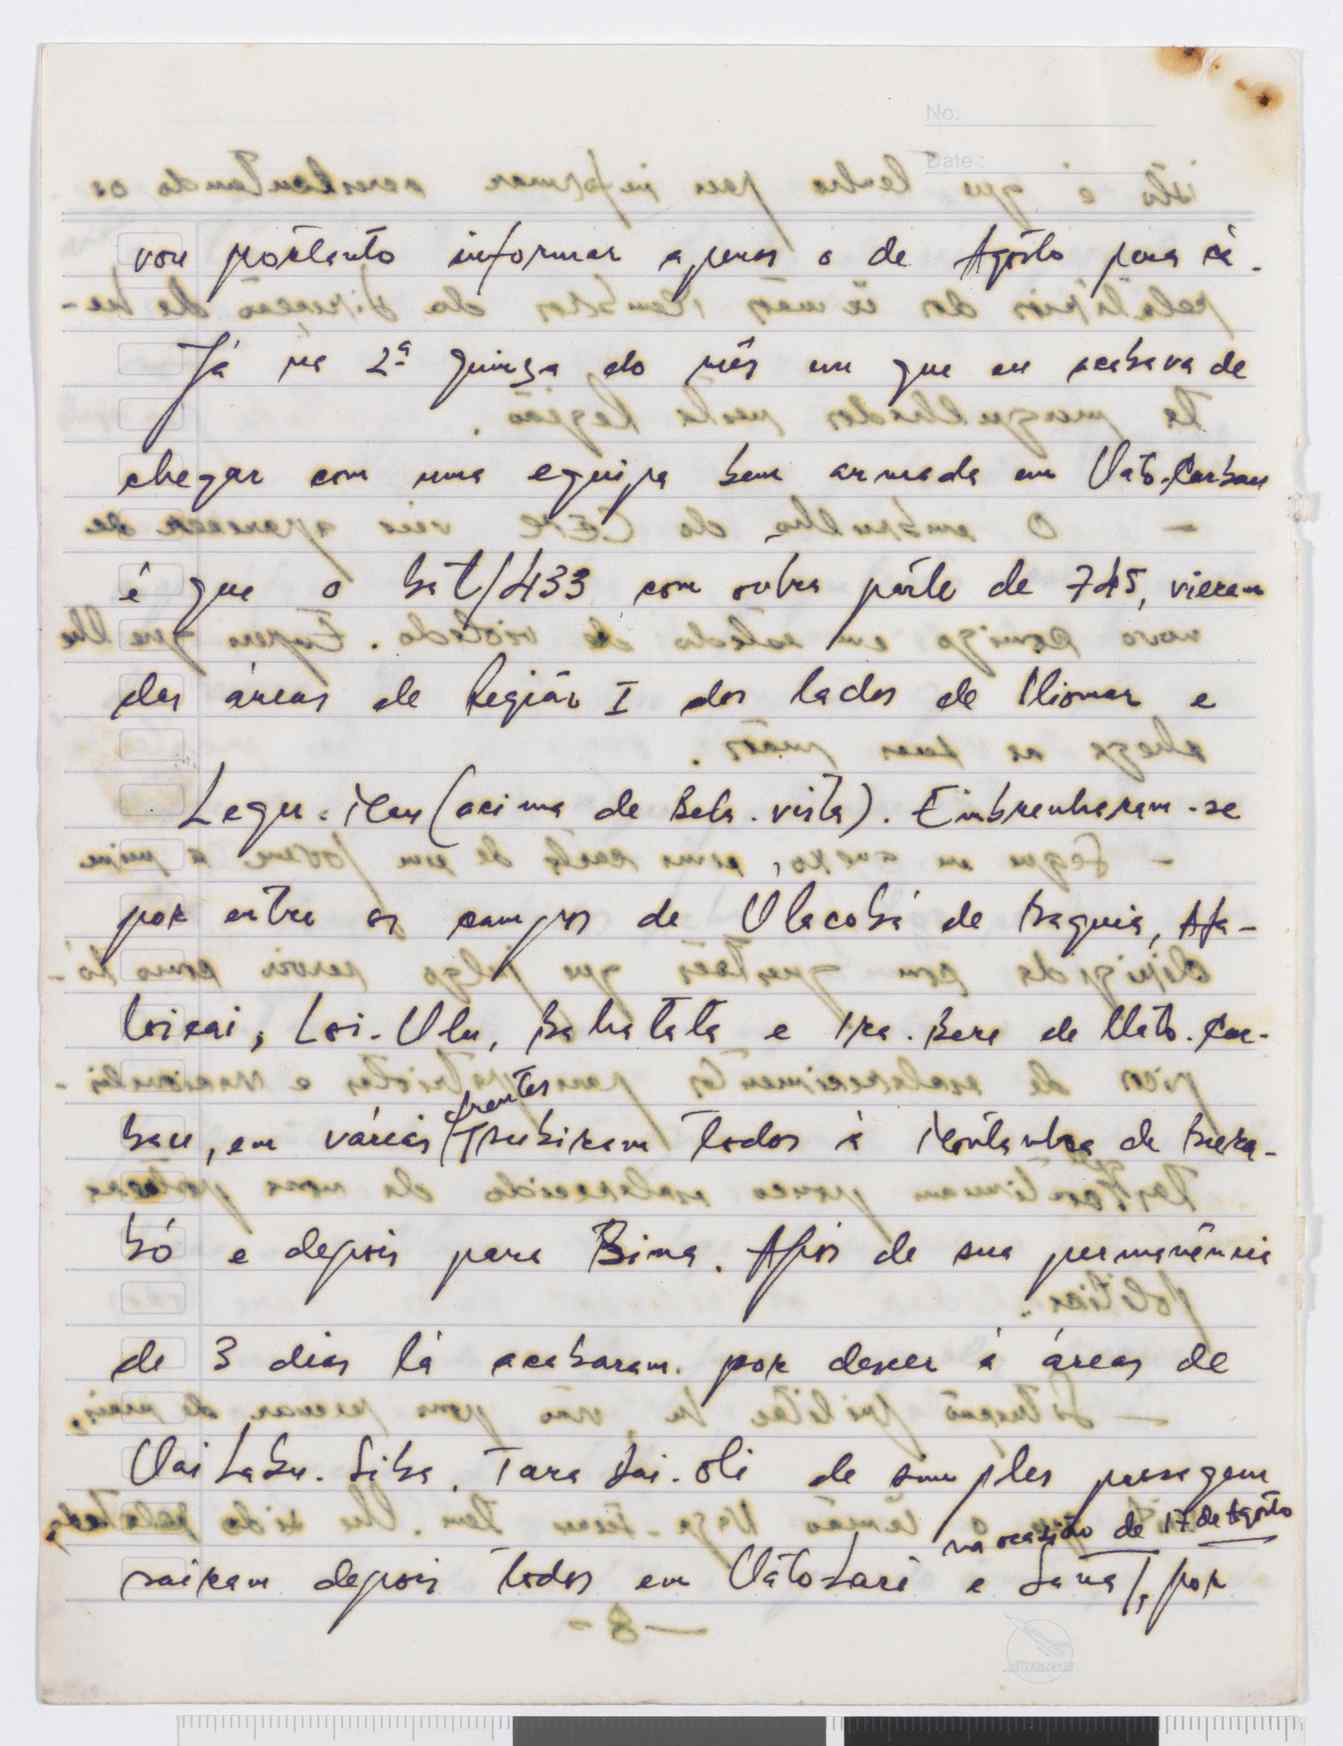 No:
Date:
vou portanto informar apenas o de Agosto para cá.
Já na 2ª quinza do mês em que eu acabava de
chegar com uma equipa bem armada em Uato-Carbau
é que o bat/433 com outra parte de 745, vieram
das áreas de Região I dos lados de Iliomar e
Legu. (acima de Bela-vista). Embrenharam-se
por entre os campos de Ulacobá de Baguia, Afa-
loicai, Loi-Ulu, Bahatata e Ira-Bere de Uato-Car-
bau, em várias frentes subiram todos à Montanha de Builo-
bó e depois para Bima. Após de sua permanência
de 3 dias lá acabaram por descer à áreas de
Uai Labu. Liba. Tara Uai-oli de simples passagem
na ocasião de 17 de Agosto
sairam depois todos em Uato-Lari e Lana, por